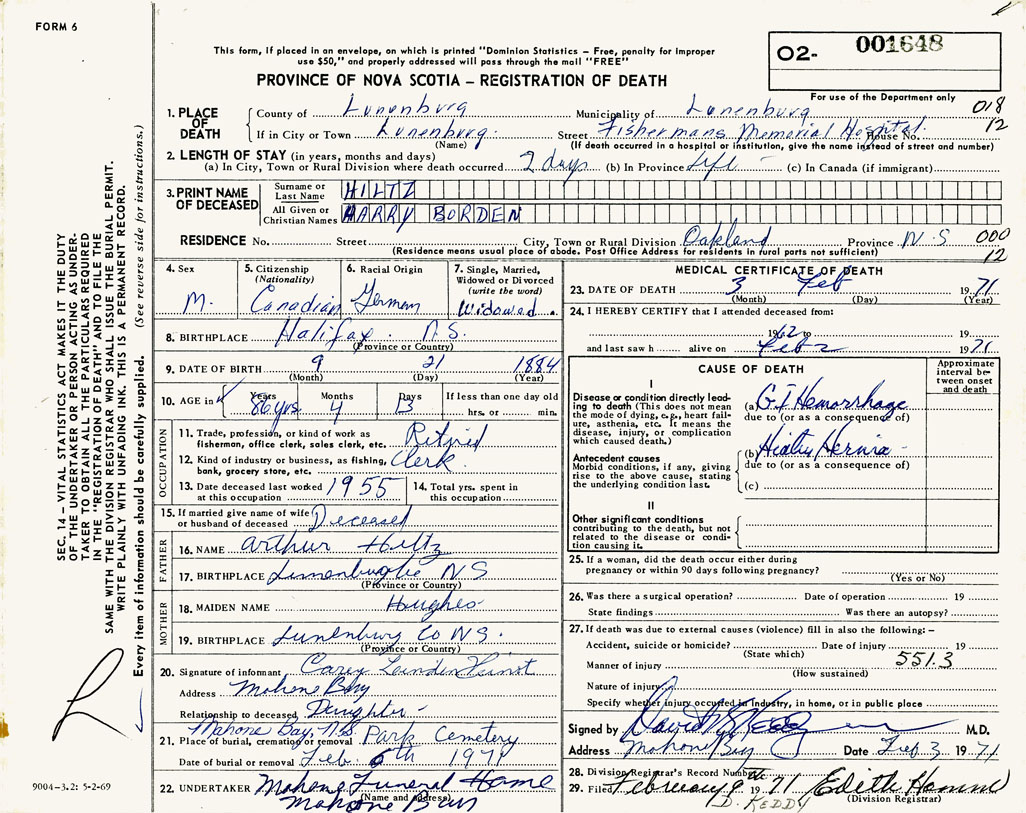 FORM 6
This form, if placed in an envelope, on which is printed "Dominion Statistics – Free, penalty for improper
use $50," and properly addressed will pass through the mail "FREE"
PROVINCE OF NOVA SCOTIA – REGISTRATION OF DEATH
O2- 001648
For use of the Department only
SEC. 14 – VITAL STATISTICS ACT MAKES IT THE DUTY
OF THE UNDERTAKER OR PERSON ACTING AS UNDER-
TAKER TO OBTAIN ALL THE PARTICULARS REQUIRED
IN THE "REGISTRATION OF DEATH" AND TO FILE THE
SAME WITH THE DIVISION REGISTRAR WHO SHALL ISSUE THE BURIAL PERMIT.
WRITE PLAINLY WITH UNFADING INK. THIS IS A PERMANENT RECORD.
Every item of information should be carefully supplied. (See reverse side for instructions.)
1. PLACE OF DEATH
County of Lunenburg Municipality of Lunenburg 018
If in City or Town Lunenburg. Street Fishermans Memorial Hospital. House No. 12
(Name) (If death occurred in a hospital or institution, give the name instead of street and number)
2. LENGTH OF STAY (in years, months and days)
(a) In City, Town or Rural Division where death occurred 2 days (b) In Province Life (c) In Canada (if immigrant)
3. PRINT NAME OF DECEASED
Surname or Last Name HILTZ
All Given or Christian Names HARRY BORDEN
RESIDENCE No. Street City, Town or Rural Division Oakland Province N.S 000
(Residence means usual place of abode. Post Office Address for residents in rural parts not sufficient) 12
4. Sex M.
5. Citizenship (Nationality) Canadian
6. Racial Origin German
7. Single, Married, Widowed or Divorced (write the word) Widowed.
8. BIRTHPLACE Halifax N.S.
(Province or Country)
9. DATE OF BIRTH 9 21 1884
(Month) (Day) (Year)
10. AGE in Years Months Days If less than one day old
86 yrs 4 13 hrs. or min.
OCCUPATION
11. Trade, profession, or kind of work as
fisherman, office clerk, sales clerk, etc. Retired
12. Kind of industry or business, as fishing,
bank, grocery store, etc. Clerk.
13. Date deceased last worked at this occupation 1955
14. Total yrs. spent in this occupation
15. If married give name of wife
or husband of deceased Deceased
FATHER
16. NAME Arthur Hiltz
17. BIRTHPLACE N S
(Province or Country)
MOTHER
18. MAIDEN NAME Hughes
19. BIRTHPLACE Lunenburg Co N S.
(Province or Country)
20. Signature of informant Carey
Address Mahone Bay
Relationship to deceased Daughter
Mahone Bay, N.S.
21. Place of burial, cremation or removal Park Cemetery
Date of burial or removal Feb. 6th 1971
22. UNDERTAKER Mahone Funeral Home
(Name and address)
Mahone Bay
9004-3.2: 5-2-69
MEDICAL CERTIFICATE OF DEATH
23. DATE OF DEATH 3 Feb 1971
(Month) (Day) (Year)
24. I HEREBY CERTIFY that I attended deceased from:
1962 to 19
and last saw h alive on Feb 2 1971
CAUSE OF DEATH
Approximate interval between onset and death
I
Disease or condition directly leading to death (This does not mean the mode of dying, e.g., heart failure, asthenia, etc. It means the disease, injury, or complication which caused death.)
(a) G I Hemorrhage
due to (or as a consequence of)
Antecedent causes
Morbid conditions, if any, giving rise to the above cause, stating the underlying condition last.
(b) Hernia
due to (or as a consequence of)
(c)
II
Other significant conditions
contributing to the death, but not related to the disease or condition causing it.
25. If a woman, did the death occur either during
pregnancy or within 90 days following pregnancy?
(Yes or No)
26. Was there a surgical operation? Date of operation 19
State findings Was there an autopsy?
27. If death was due to external causes (violence) fill in also the following: –
Accident, suicide or homicide? Date of injury 19
(State which)
Manner of injury 551.3
(How sustained)
Nature of injury
Specify whether injury occurred in industry, in home, or in public place
Signed by M.D.
Address Mahone Bay Date Feb 3 1971
28. Division Registrar's Record Number
29. Filed February 9 1971 Edith
D. KEDDY (Division Registrar)